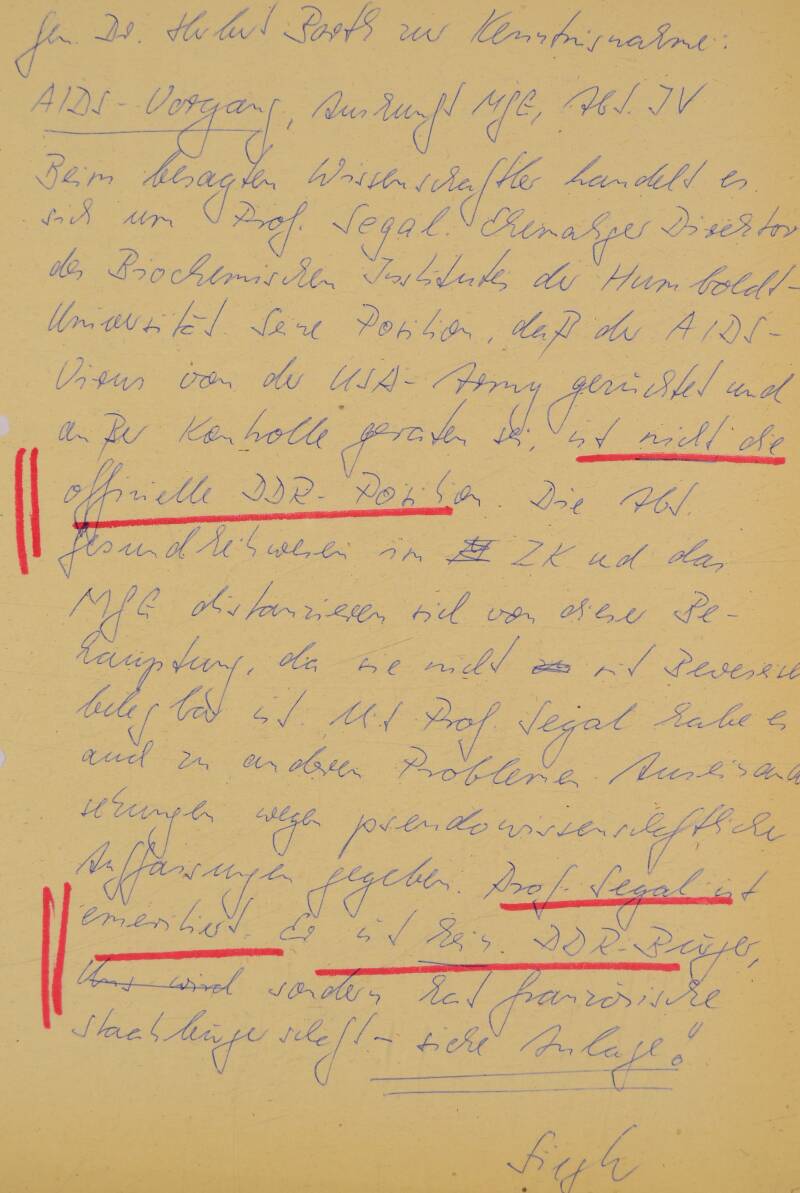 Gen. Dr. Hubert Barth zur Kenntnisnahme:
AIDS-Vorgang, Auskunft MfG, Abt. IV
Beim besagten Wissenschaftler handelt es
sich um Prof. Segal. Ehemaliger Direktor
des Biochemischen Institutes der Humboldt-
Universität. Seine Position, daß der AIDS-
Virus von der USA-Army gezüchtet und
außer Kontrolle geraten sei, ist nicht die
offizielle DDR-Position. Die Abt.
Gesundheitswesen im ZK und das
MfG distanzieren sich von dieser Be-
hauptung, da sie nicht mit Beweisen
belegbar ist. Mit Prof. Segal habe es
auch zu anderen Problemen Auseinand
setzungen wegen pseudowissenschaftlicher
Auffassungen gegeben. Prof. Segal ist
emeritiert. Er ist kein DDR-Bürger,
sondern hat französische
Staatsbürgerschaft – siehe Anlage!